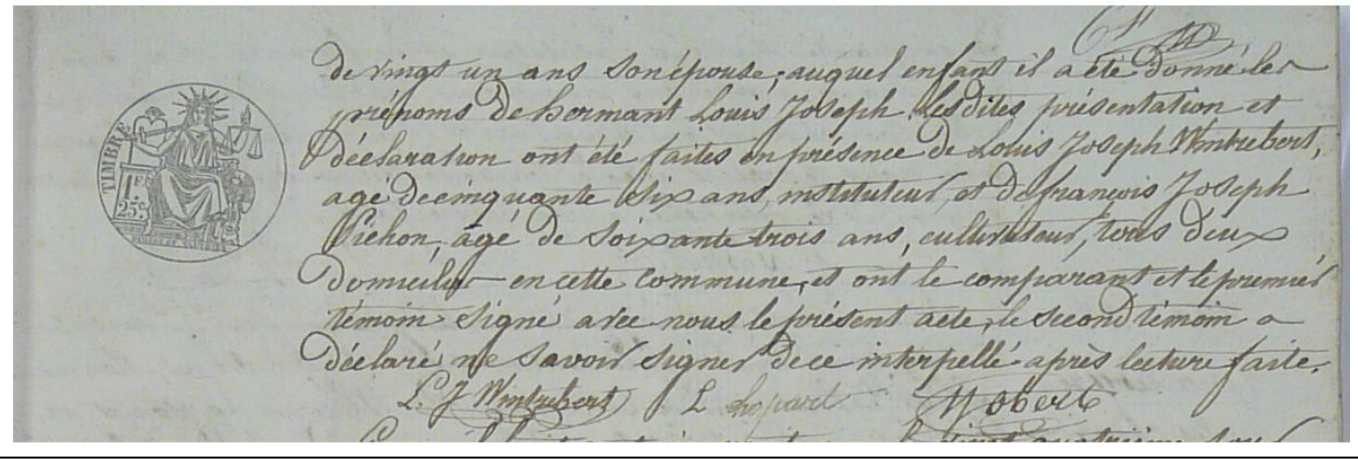 de vingt un ans son épouse, auquel enfant il a été donné les
prénoms de hermant Louis Joseph. Lesdites présentation et
déclaration ont été faites en présence de Louis Joseph Wintrebert,
agé de cinquante six ans, instituteur, et de françois Joseph
Pichon, agé de soixante trois ans, cultivateur, tous deux
domiciliés en cette commune, et ont le comparant et le premier
témoin signé avec nous le présent acte, le second témoin a
déclaré ne savoir signer de ce interpellé après lecture faite.
L. J Wintrebert L chopart Hobert
TIMBRE
1 F.
25 c.